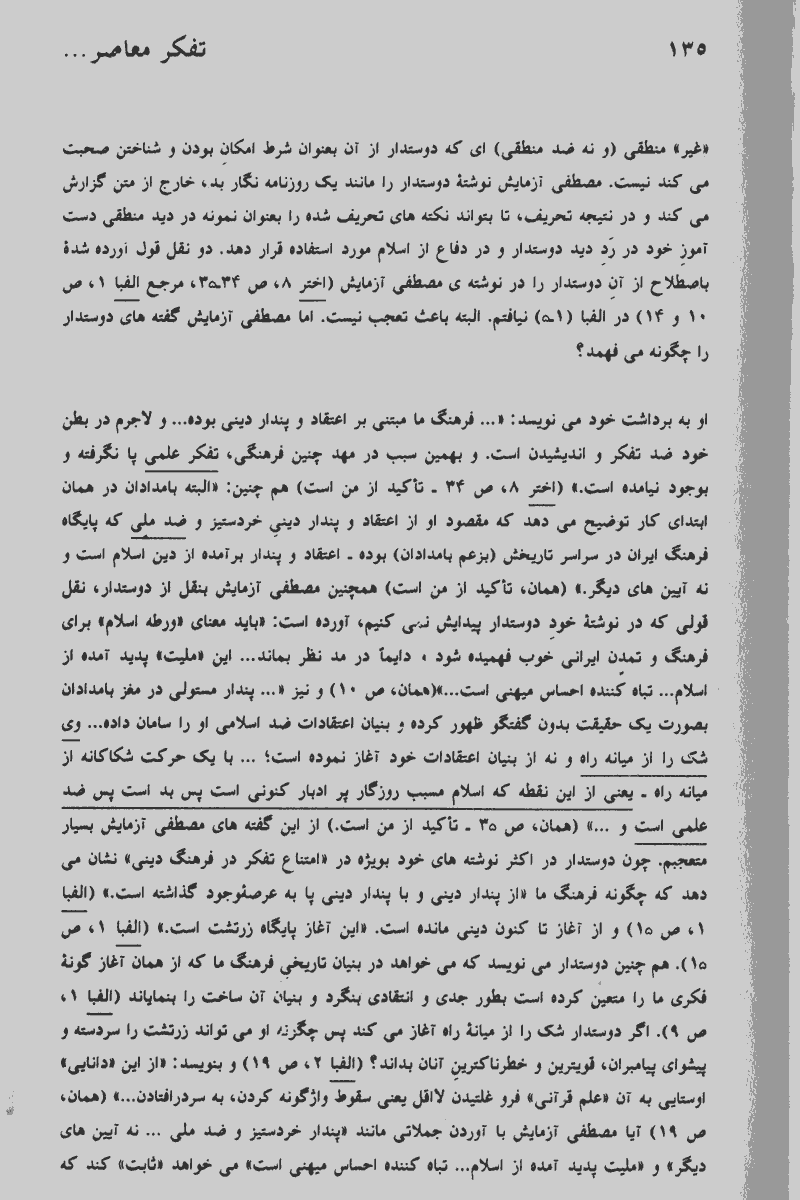 ۱۳۵ تفکر معاصر...
«غیر» منطقی (و نه ضد منطقی) ای که دوستدار از آن بعنوان شرط امکانِ بودن و شناختن صحبت
می کند نیست. مصطفی آزمایش نوشتهٔ دوستدار را مانند یک روزنامه نگار بد، خارج از متن گزارش
می کند و در نتیجه تحریف، تا بتواند نکته های تحریف شده را بعنوان نمونه در دید منطقی دست
آموزِ خود در رَدِ دید دوستدار و در دفاع از اسلام مورد استفاده قرار دهد. دو نقل قول آورده شدهٔ
باصطلاح از آنِ دوستدار را در نوشته ی مصطفی آزمایش (اختر ۸، ص ۳۴ـ۳۵، مرجع الفبا ۱، ص
۱۰ و ۱۴) در الفبا (۱ـ۵) نیافتم. البته باعث تعجب نیست. اما مصطفی آزمایش گفته های دوستدار
را چگونه می فهمد؟
او به برداشت خود می نویسد: «... فرهنگ ما مبتنی بر اعتقاد و پندار دینی بوده... و لاجرم در بطن
خود ضد تفکر و اندیشیدن است. و بهمین سبب در مهد چنین فرهنگی، تفکر علمی پا نگرفته و
بوجود نیامده است.» (اختر ۸، ص ۳۴ ـ تأکید از من است) هم چنین: «البته بامدادان در همان
ابتدای کار توضیح می دهد که مقصود او از اعتقاد و پندار دینیِ خردستیز و ضد ملی که پایگاه
فرهنگ ایران در سراسر تاریخش (بزعم بامدادان) بوده ـ اعتقاد و پندار برآمده از دین اسلام است و
نه آیین های دیگر.» (همان، تأکید از من است) همچنین مصطفی آزمایش بنقل از دوستدار، نقل
قولی که در نوشتهٔ خودِ دوستدار پیدایش نمی کنیم، آورده است: «باید معنای «ورطه اسلام» برای
فرهنگ و تمدن ایرانی خوب فهمیده شود ، دایماً در مد نظر بماند... این «ملیت» پدید آمده از
اسلام... تباه کننده احساس میهنی است...»(همان، ص ۱۰) و نیز «... پندار مستولی در مغز بامدادان
بصورت یک حقیقت بدون گفتگو ظهور کرده و بنیان اعتقادات ضد اسلامی او را سامان داده... وی
شک را از میانه راه و نه از بنیان اعتقادات خود آغاز نموده است؛ ... با یک حرکت شکاکانه از
میانه راه ـ یعنی از این نقطه که اسلام مسبب روزگار پر ادبار کنونی است پس بد است پس ضد
علمی است و ...» (همان، ص ۳۵ ـ تأکید از من است.) از این گفته های مصطفی آزمایش بسیار
متعجبم. چون دوستدار در اکثر نوشته های خود بویژه در «امتناع تفکر در فرهنگ دینی» نشان می
دهد که چگونه فرهنگ ما «از پندار دینی و با پندار دینی پا به عرصهٔوجود گذاشته است.» (الفبا
۱، ص ۱۵) و از آغاز تا کنون دینی مانده است. «این آغاز پایگاه زرتشت است.» (الفبا ۱، ص
۱۵). هم چنین دوستدار می نویسد که می خواهد در بنیان تاریخیِ فرهنگ ما که از همان آغاز گونهٔ
فکری ما را متعین کرده است بطور جدی و انتقادی بنگرد و بنیان آن ساخت را بنمایاند (الفبا ۱،
ص ۹). اگر دوستدار شک را از میانهٔ راه آغاز می کند پس چگونه او می تواند زرتشت را سردسته و
پیشوای پیامبران، قویترین و خطرناکترینِ آنان بداند؟ (الفبا ۲، ص ۱۹) و بنویسد: «از این «دانایی»
اوستایی به آن «علم قرآنی» فرو غلتیدن لااقل یعنی سقوط واژگونه کردن، به سردرافتادن...» (همان،
ص ۱۹) آیا مصطفی آزمایش با آوردن جملاتی مانند «پندار خردستیز و ضد ملی ... نه آیین های
دیگر» و «ملیت پدید آمده از اسلام... تباه کننده احساس میهنی است» می خواهد «ثابت» کند که